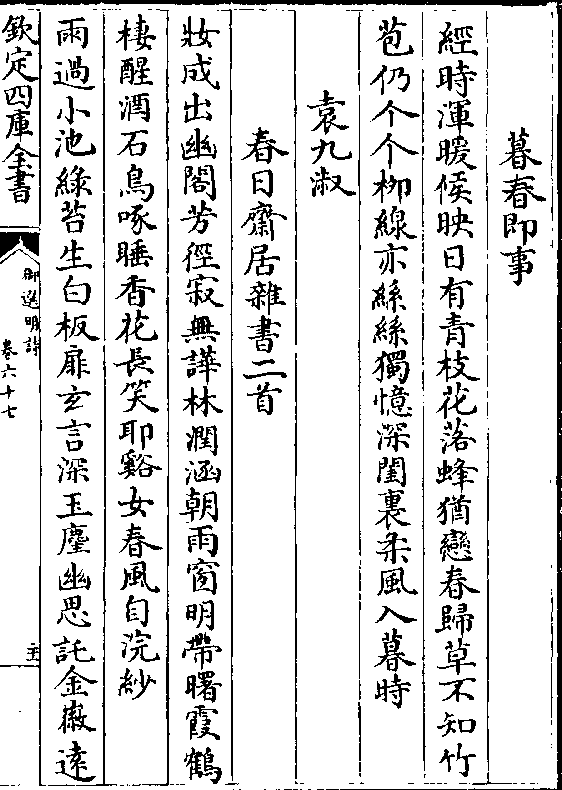 暮春即事
經時渾暖候映日有青枝花落蜂猶戀春歸草不知竹
苞仍个个柳線亦絲絲獨憶深閨裏柔風入暮時
袁九淑
春日齋居雜書二首
妝成出幽閣芳徑寂無譁林潤涵朝雨窗明帶曙霞鶴
棲醒酒石鳥啄睡香花長笑耶谿女春風自浣紗
雨過小池綠苔生白板扉玄言深玉麈幽思託金徽遠
欽定四庫全書
御選明詩
卷六十七